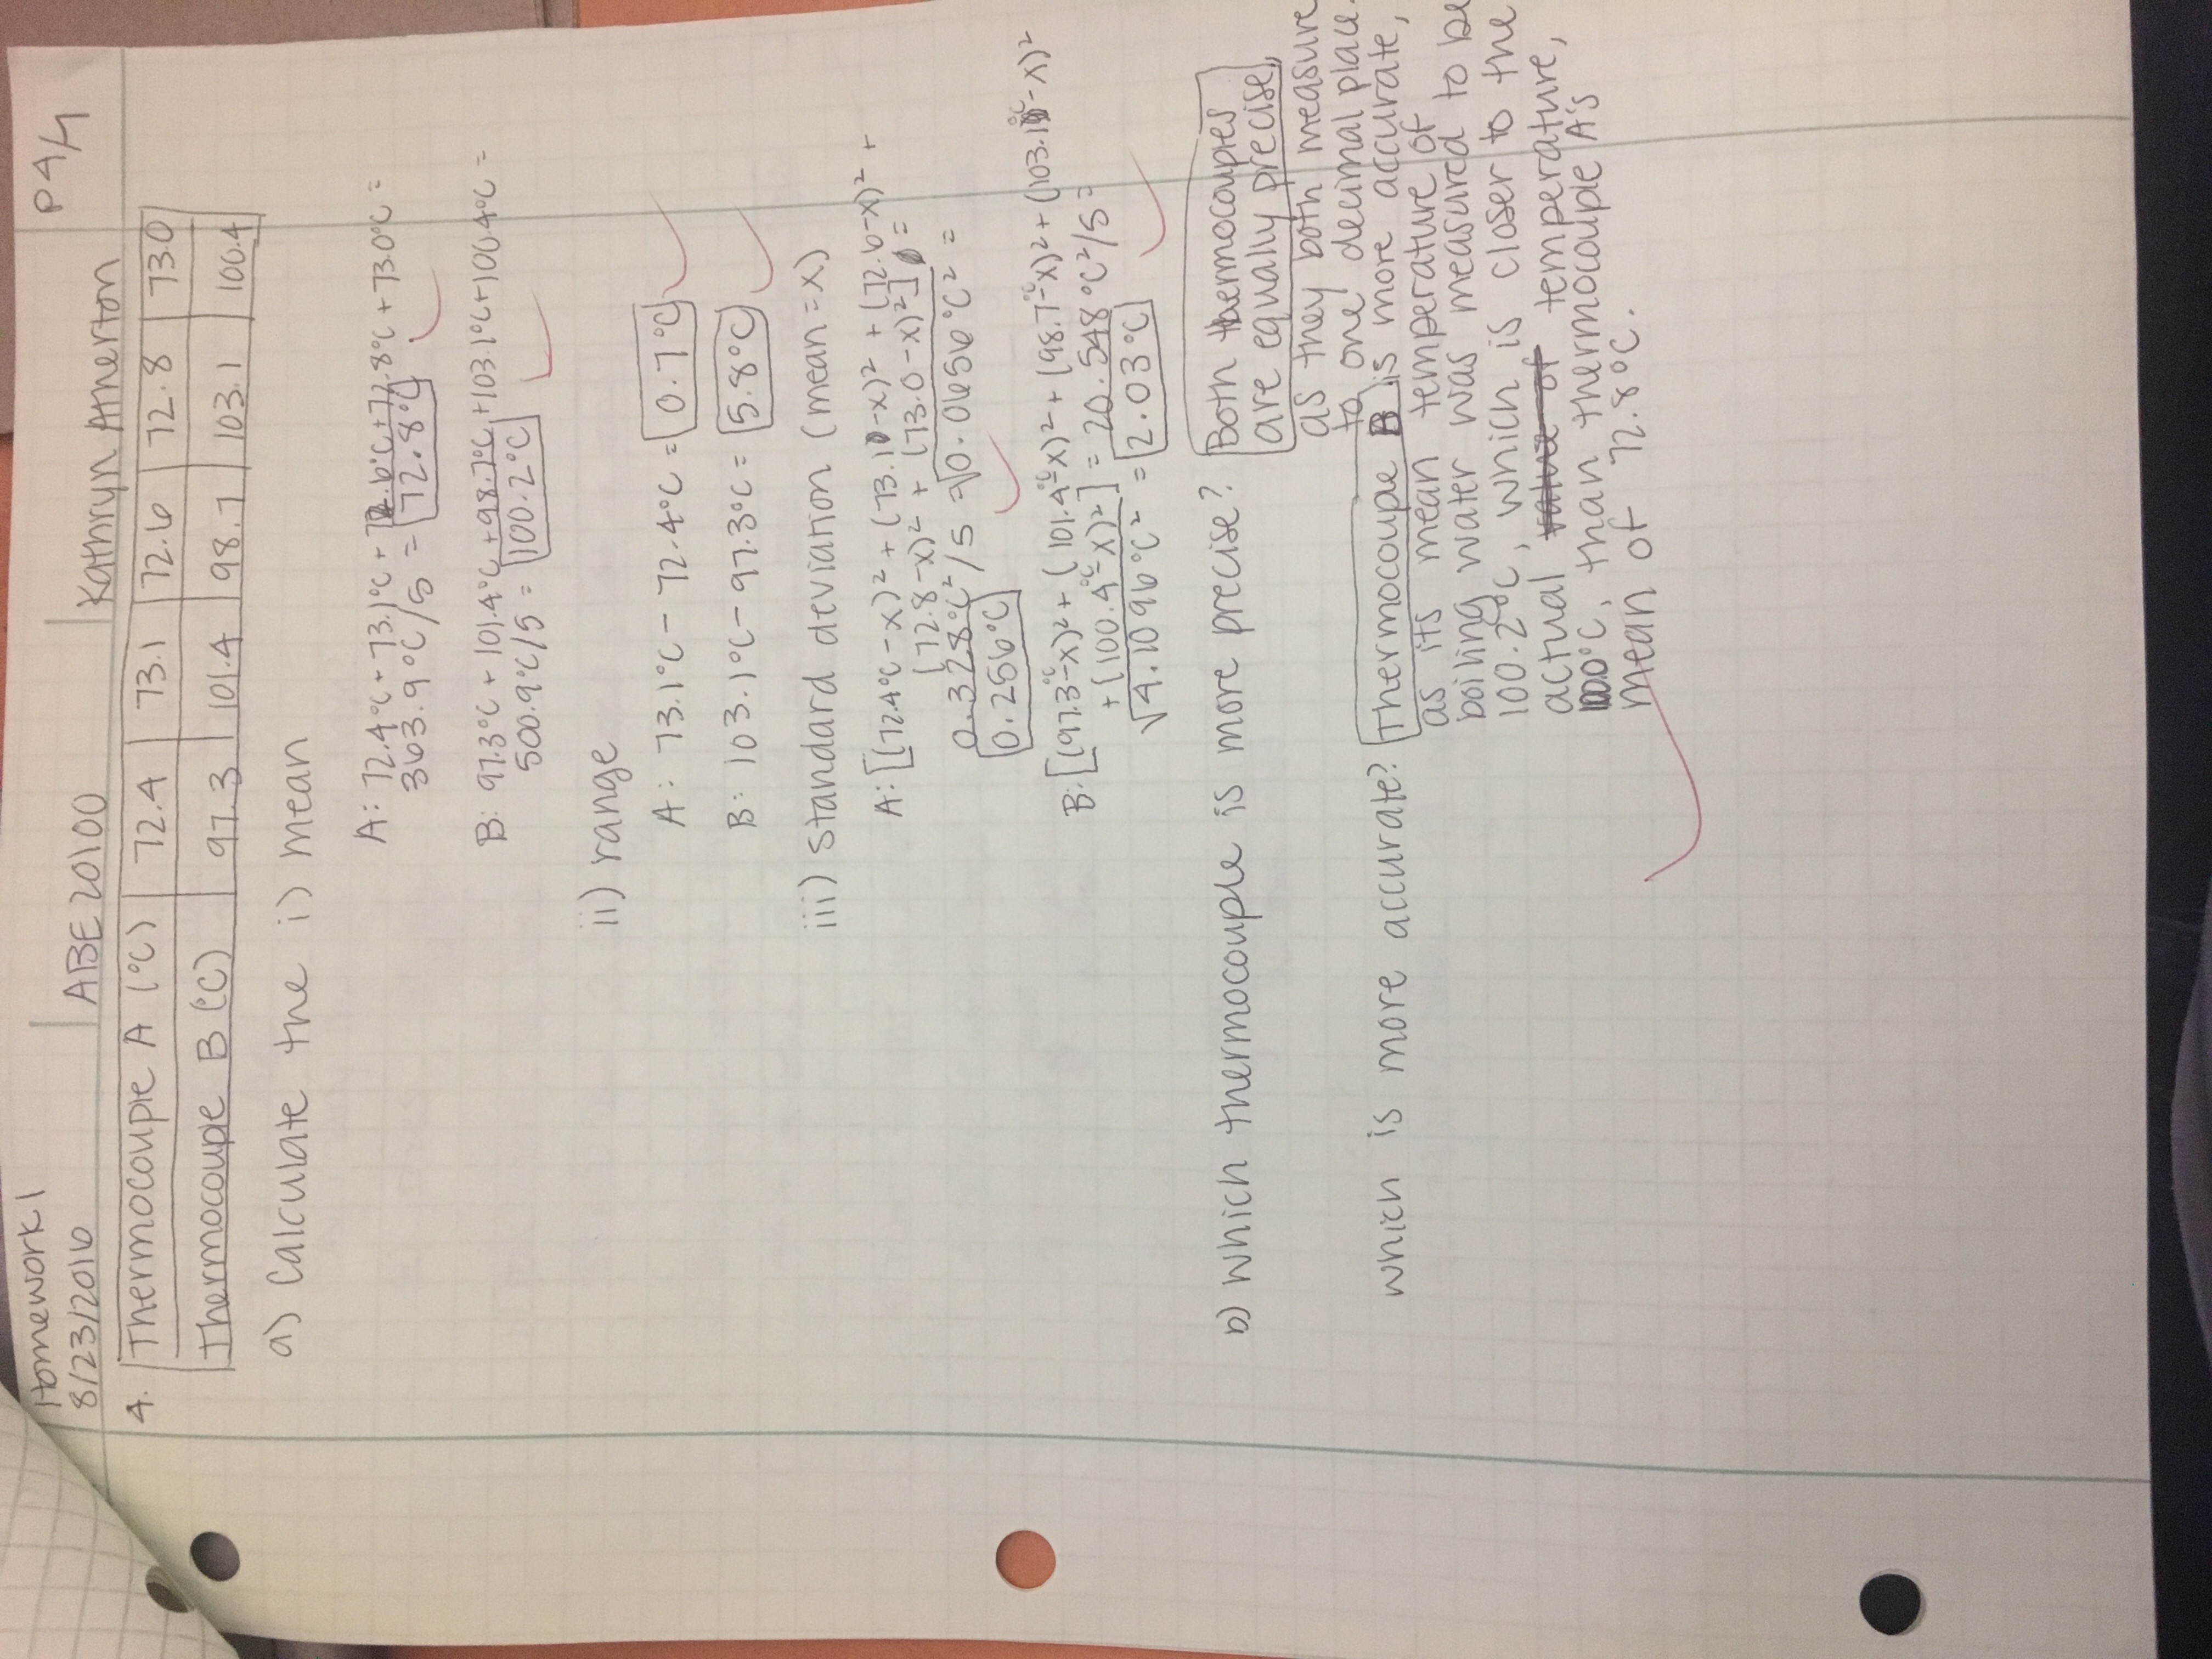 Homework 1
8/23/2016 ABE 20100 Kathryn Atherton P4/4
4. Thermocouple A (°C) 72.4 73.1 72.6 72.8 73.0
Thermocouple B (°C) 97.3 101.4 98.7 103.1 100.4
a) Calculate the i) mean
A: 72.4°C + 73.1°C + 72.6°C + 72.8°C + 73.0°C =
363.9°C/5 = 72.8°C
B: 97.3°C + 101.4°C + 98.7°C + 103.1°C + 100.4°C =
500.9°C/5 = 100.2°C
ii) range
A: 73.1°C - 72.4°C = 0.7°C
B: 103.1°C - 97.3°C = 5.8°C
iii) standard deviation (mean = x)
A: [(72.4°C - x)² + (73.1 - x)² + (72.6 - x)² +
(72.8 - x)² + (73.0 - x)²] =
0.328°C²/5 = √0.0656°C² =
0.256°C
B: [(97.3°C - x)² + (101.4°C - x)² + (98.7°C - x)² + (103.1°C - x)²
+ (100.4°C - x)²] = 20.548°C²/5 =
√4.1096°C² = 2.03°C
b) Which thermocouple is more precise? Both thermocouples
are equally precise,
as they both measure
to one decimal place.
Which is more accurate? Thermocouple B is more accurate,
as its mean temperature of
boiling water was measured to be
100.2°C, which is closer to the
actual value of temperature,
100.0°C, than thermocouple A's
mean of 72.8°C.